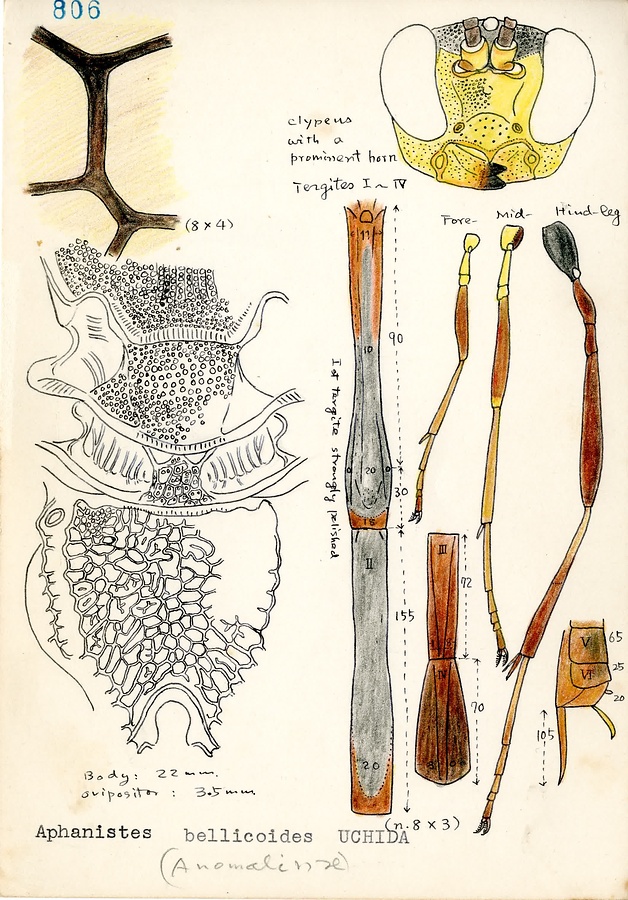 806
clypeus
with a
prominent horn
Tergites I ~ IV
(8 x 4)
Fore- Mid- Hind-leg
11
10
90
1st tergite strongly polished
20
30
18
II
155
20
III
72
IV
70
V 65
VI 25
20
105
Body: 22 mm.
ovipositor : 3.5 mm.
(n. 8 x 3)
Aphanistes bellicoides UCHIDA
(Anomalinae)